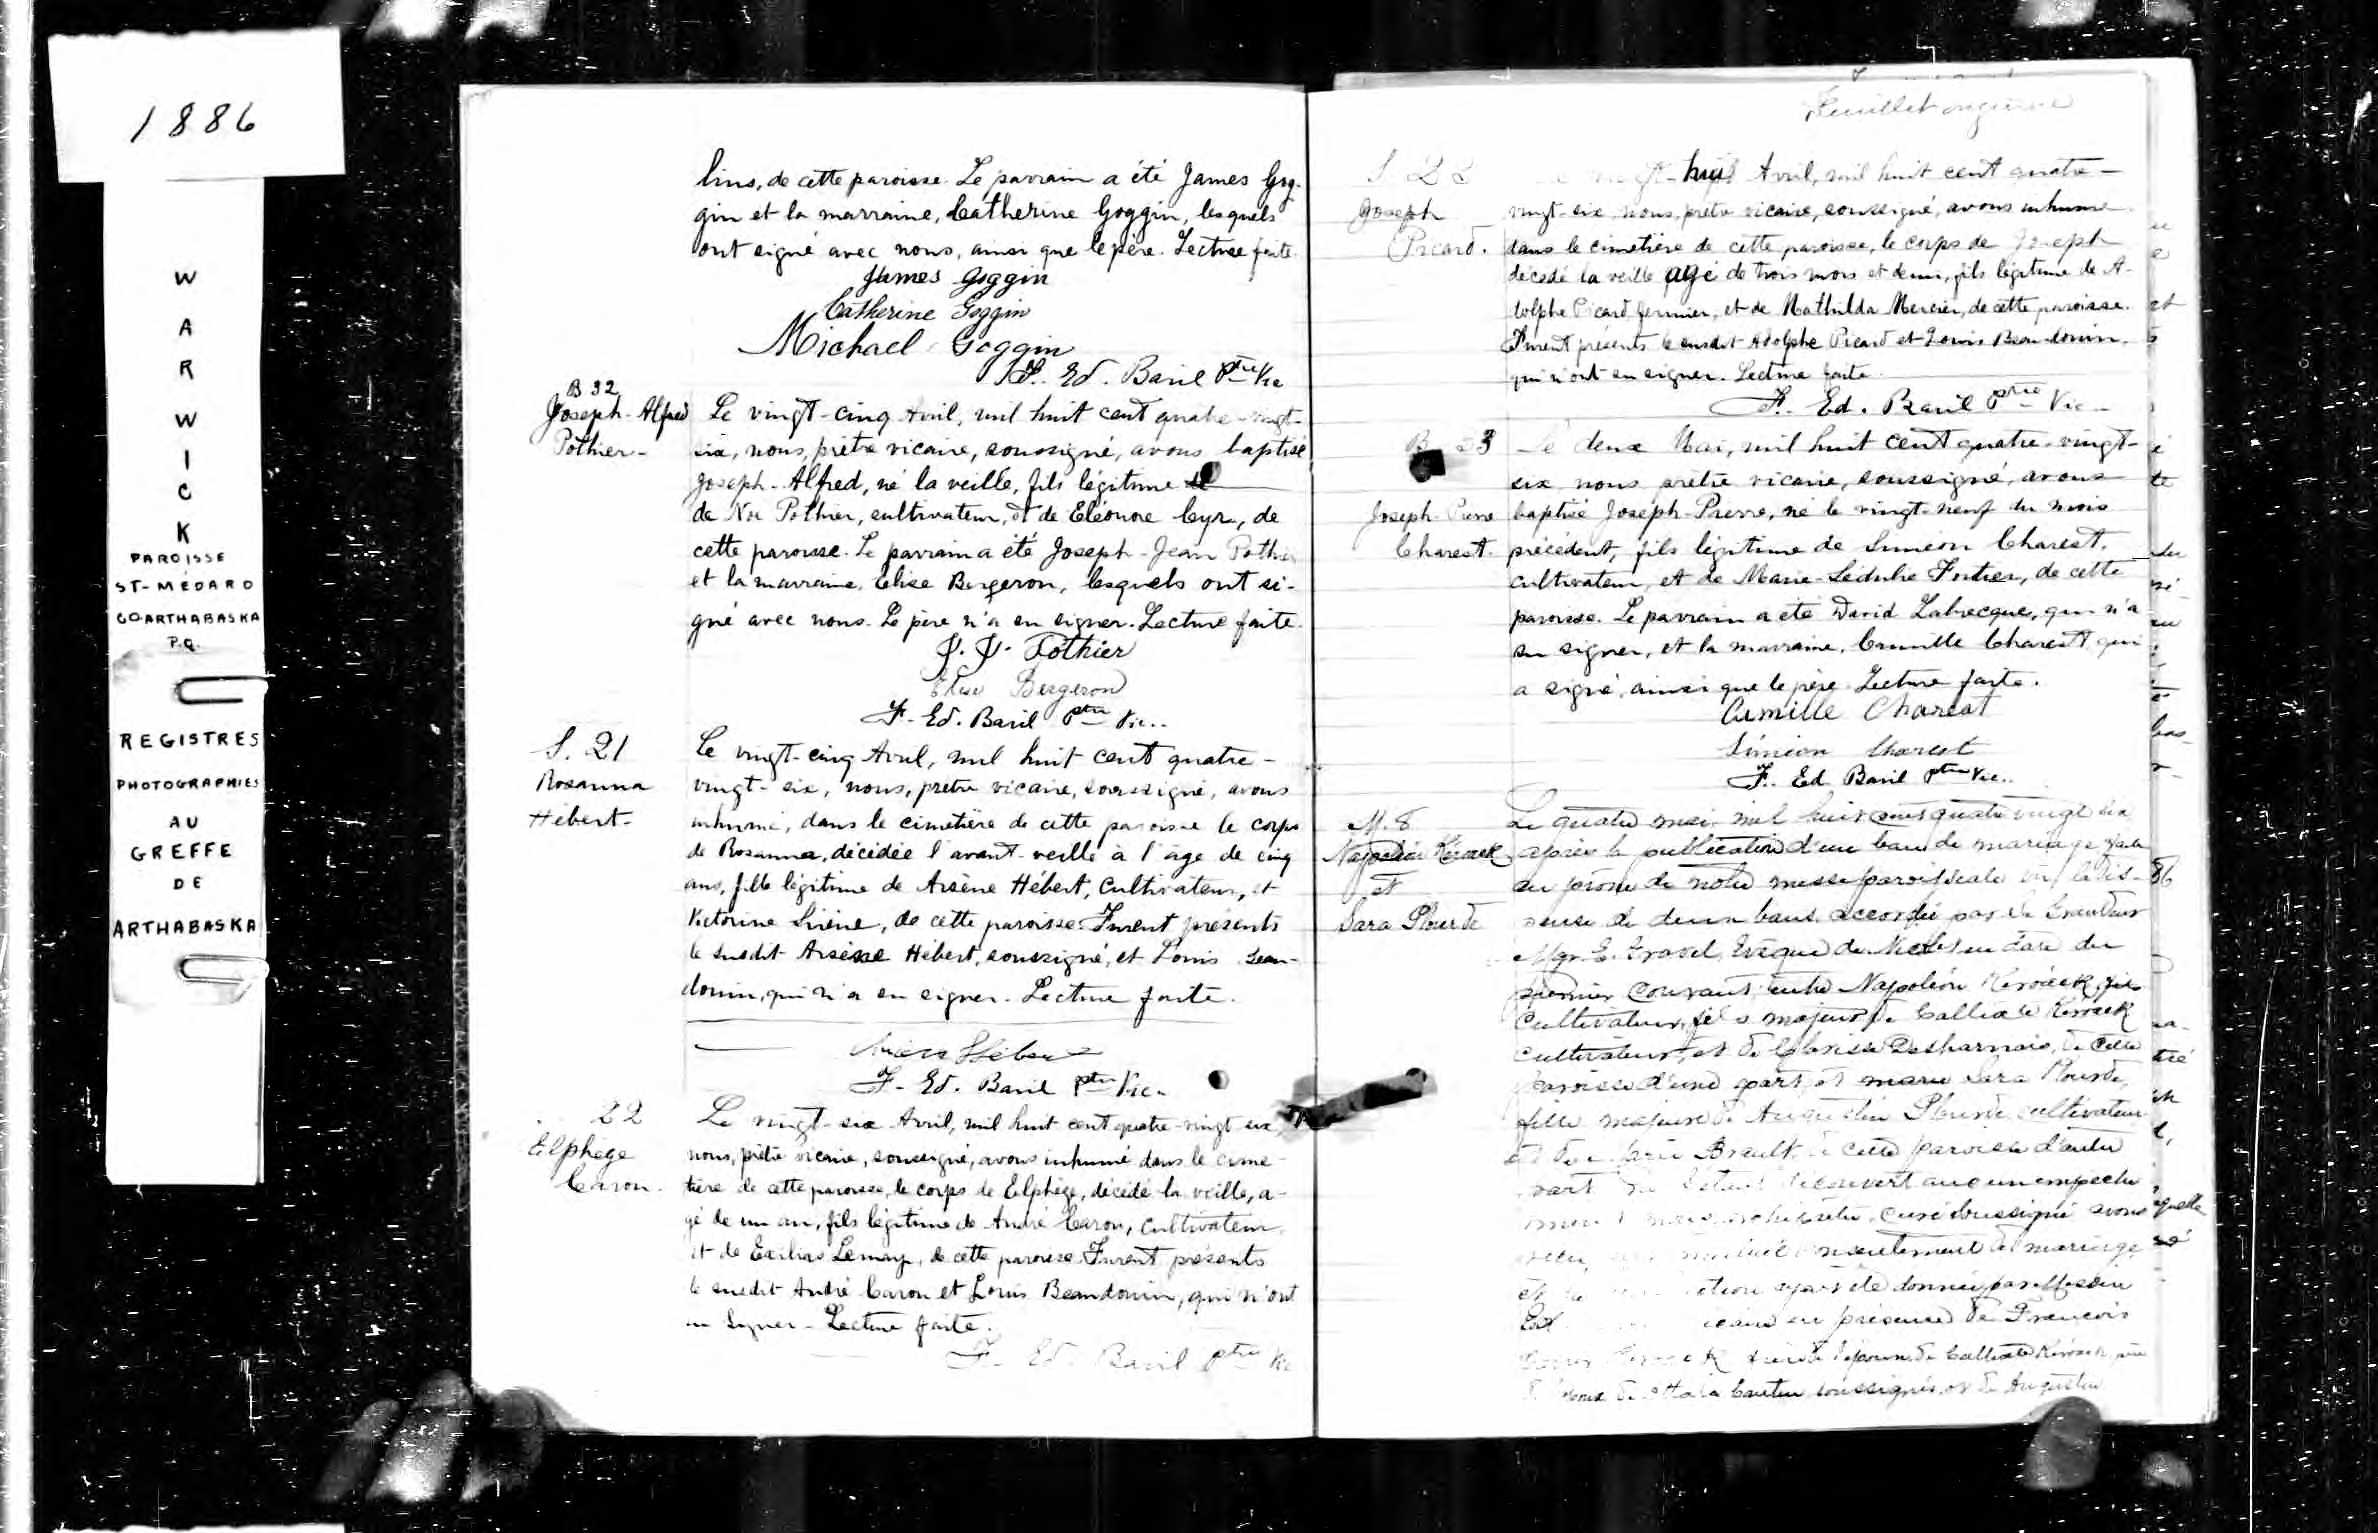 1886
W
A
R
W
I
C
K
PAROISSE
ST-MÉDARD
CO ARTHABASKA
P.Q.
REGISTRES
PHOTOGRAPHIES
AU
GREFFE
DE
ARTHABASKA
lins, de cette paroisse. Le parrain a été James Gog-
gin et la marraine, Catherine Goggin, lesquels
ont signé avec nous, ainsi que le père. Lecture faite.
James Goggin
Catherine Goggin
Michael Goggin
F. Ed. Baril Ptre Vic
B 32
Joseph-Alfred
Pothier-
Le vingt-cinq Avril, mil huit cent quatre-vingt-
six, nous, prêtre vicaire, soussigné, avons baptisé
Joseph-Alfred, né la veille, fils légitime
de Noé Pothier, cultivateur, et de Eléonore Cyr, de
cette paroisse. Le parrain a été Joseph-Jean Pothier
et la marraine, Elise Bergeron, lesquels ont si-
gné avec nous. Le père n'a su signer. Lecture faite.
J. J. Pothier
Elise Bergeron
F. Ed. Baril Ptre Vic..
S. 21
Rosanna
Hébert-
Le vingt-cinq Avril, mil huit cent quatre-
vingt-six, nous, prêtre vicaire, soussigné, avons
inhumé, dans le cimetière de cette paroisse le corps
de Rosanna, décédée l'avant-veille à l'âge de cinq
ans, fille légitime de Arsène Hébert, cultivateur, et
Victorine Sirène, de cette paroisse. Furent présents
le susdit Arsène Hébert, soussigné, et Louis Beau-
douin, qui n'a su signer. Lecture faite.
Hébert
F. Ed. Baril Ptre Vic.
22
Elphège
Caron.
Le vingt-six Avril, mil huit cent quatre-vingt six,
nous, prêtre vicaire, soussigné, avons inhumé dans le cime-
tière de cette paroisse, le corps de Elphège, décédé la veille, a-
gé de un an, fils légitime de André Caron, cultivateur,
et de Exilias Lemay, de cette paroisse. Furent présents
le susdit André Caron et Louis Beaudouin, qui n'ont
su signer - Lecture faite.
F. Ed. Baril ptre Vic
Feuillet onzième
S 23
Joseph
Picard.
vingt-huit Avril, mil huit cent quatre-
vingt-six, nous, prêtre vicaire, soussigné, avons inhumé
dans le cimetière de cette paroisse, le corps de Joseph
décédé la veille agé de trois mois et demi, fils légitime de A-
dolphe Picard, fermier, et de Mathilda Mercier, de cette paroisse.
Furent présents le susdit Adolphe Picard et Louis Beaudouin,
qui n'ont su signer. Lecture faite.
F. Ed. Baril Ptre Vic-
B 33
Joseph-Pierre
Charest.
Le deux Mai, mil huit cent quatre-vingt-
six, nous prêtre vicaire, soussigné, avons
baptisé Joseph-Pierre, né le vingt-neuf du mois
précédent, fils légitime de Siméon Charest,
cultivateur, et de Marie-Séduhe Fortier, de cette
paroisse. Le parrain a été David Labrecque, qui n'a
su signer, et la marraine, Camille Charest, qui
a signé, ainsi que le père. Lecture faite.
Camille Charest
Siméon Charest
F. Ed Baril ptre Vic..
M. 8
Napoléon Kéroack
et
Sara Plourde
Le quatre mai, mil huit cent quatre vingt six
après la publication d'un ban de mariage faite
au prône de notre messe paroissiale vu la dis-
pense de deux bans accordée par Sa Grandeur
Mgr. E. Gravel, Evêque de Nicolet en date du
premier courant, entre Napoléon Kéroack, fils
Cultivateur, fils majeur de Calliste Kéroack
cultivateur, et de Clarisse Desharnais, de cette
paroisse d'une part, et marie Sara Plourde,
fille majeure de Augustin Plourde, cultivateur
et de Marie Brault, de cette paroisse d'autre
part découvert aucun empêche
ment nous curé soussigné avons
mutuel consentement de mariage
et ayant été donnée par Messire
Ed en présence de François
Kéroack frère de l'époux, de Calliste Kéroack, père
de Cantin, soussignés, et de Augustin